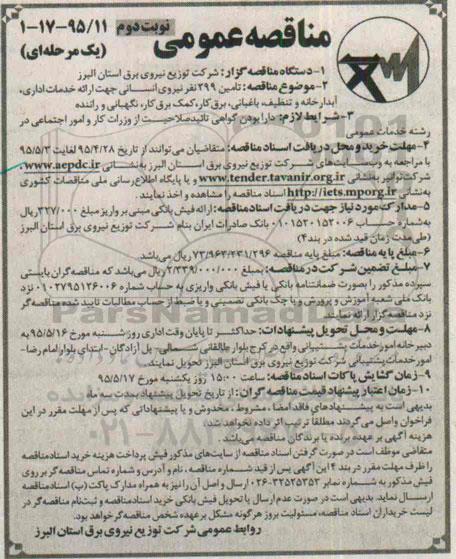 مناقصه عمومی
نوبت دوم
۱-۱۷-۹۵/۱۱
(یک مرحله‌ای)
۱- دستگاه مناقصه گزار: شرکت توزیع نیروی برق استان البرز
۲- موضوع مناقصه: تامین ۲۹۹ نفر نیروی انسانی جهت ارائه خدمات اداری،
آبدارخانه و تنظیف، باغبانی، برق کار، کمک برق کار، نگهبانی و راننده
۳- شرایط لازم: دارا بودن گواهی تائید صلاحیت از وزرات کار و امور اجتماعی در
رشته خدمات عمومی
۴- مهلت خرید و محل دریافت اسناد مناقصه: متقاضیان می‌توانند از تاریخ ۹۵/۴/۲۸ لغایت ۹۵/۵/۳
با مراجعه به وب‌سایت‌های شرکت توزیع نیروی برق استان البرز به‌نشانی www.aepdc.ir،
شرکت توانیر به‌نشانی www.tender.tavanir.org.ir و یا پایگاه اطلاع رسانی ملی مناقصات کشوری
به‌نشانی http://iets.mporg.ir اسناد مناقصه را مشاهده و اخذ نمایند.
۵- مدارک مورد نیاز جهت دریافت اسناد مناقصه: ارائه فیش بانکی مبنی بر واریز مبلغ ۳۲۷/۰۰۰ ریال
به شماره حساب ۰۱۰۱۵۲۰۱۵۲۰۰۶ بانک صادرات ایران بنام شرکت توزیع نیروی برق استان البرز
(طی مدت زمان قید شده در بند ۴)
۶- مبلغ پایه مناقصه: مبلغ پایه مناقصه ۷۳/۹۶۳/۲۳۱/۲۹۶ ریال می‌باشد.
۷- مبلغ تضمین شرکت در مناقصه: بمبلغ ۲/۳۳۹/۰۰۰/۰۰۰ ریال می‌باشد که مناقصه‌گران بایستی
سپرده مذکور را بصورت ضمانتنامه بانکی یا فیش بانکی واریزی به حساب شماره ۰۱۰۲۷۹۵۱۲۶۰۰۶ نزد
بانک ملی شعبه آموزش و پرورش و یا چک بانکی تضمینی و یا ضبط از حساب مطالبات تایید شده مناقصه‌گر
نزد مناقصه گزار ارائه نمایند.
۸- مهلت و محل تحویل پیشنهادات: حداکثر تا پایان وقت اداری روز شنبه مورخ ۹۵/۵/۱۶ به
دبیرخانه امور خدمات پشتیبانی واقع در کرج بلوار طالقانی شمالی- پل آزادگان - ابتدای بلوار امام رضا-
امور خدمات پشتیبانی شرکت توزیع نیروی برق استان البرز تحویل نمایند.
۹- زمان گشایش پاکات اسناد مناقصه: ساعت ۱۵:۰۰ روز یکشنبه مورخ ۹۵/۵/۱۷
۱۰- زمان اعتبار پیشنهاد قیمت مناقصه گران: از تاریخ تحویل پیشنهاد بمدت سه ماه
بدیهی است به پیشنهادهای فاقد امضا، مشروط، مخدوش و یا پیشنهاداتی که پس از مهلت مقرر در این
فراخوان واصل می‌گردند مطلقا ترتیب اثر داده نخواهد شد.
هزینه آگهی بر عهده برنده یا برندگان مناقصه می‌باشد.
متقاضی موظف است در صورت گرفتن اسناد مناقصه از سایت‌های مذکور فیش پرداخت هزینه خرید اسناد مناقصه
را ظرف مهلت مقرر در بند ۴ این آگهی پس از قید شماره مناقصه، نام و آدرس و شماره تماس مناقصه گر بر روی
فیش مذکور به شماره نمابر ۳۲۵۲۵۳۵۳-۰۲۶ ارسال و اصل آن را نیز به همراه مدارک پاکت (ب) اسناد مناقصه
ارسال نماید. بدیهی است در صورت عدم ارسال یا تحویل فیش بانکی خرید اسناد مناقصه و ثبت نام مناقصه گر در
لیست خریداران اسناد مناقصه، مسئولیت بروز هرگونه مشکل بر عهده شخص مناقصه گر خواهد بود.
روابط عمومی شرکت توزیع نیروی برق استان البرز